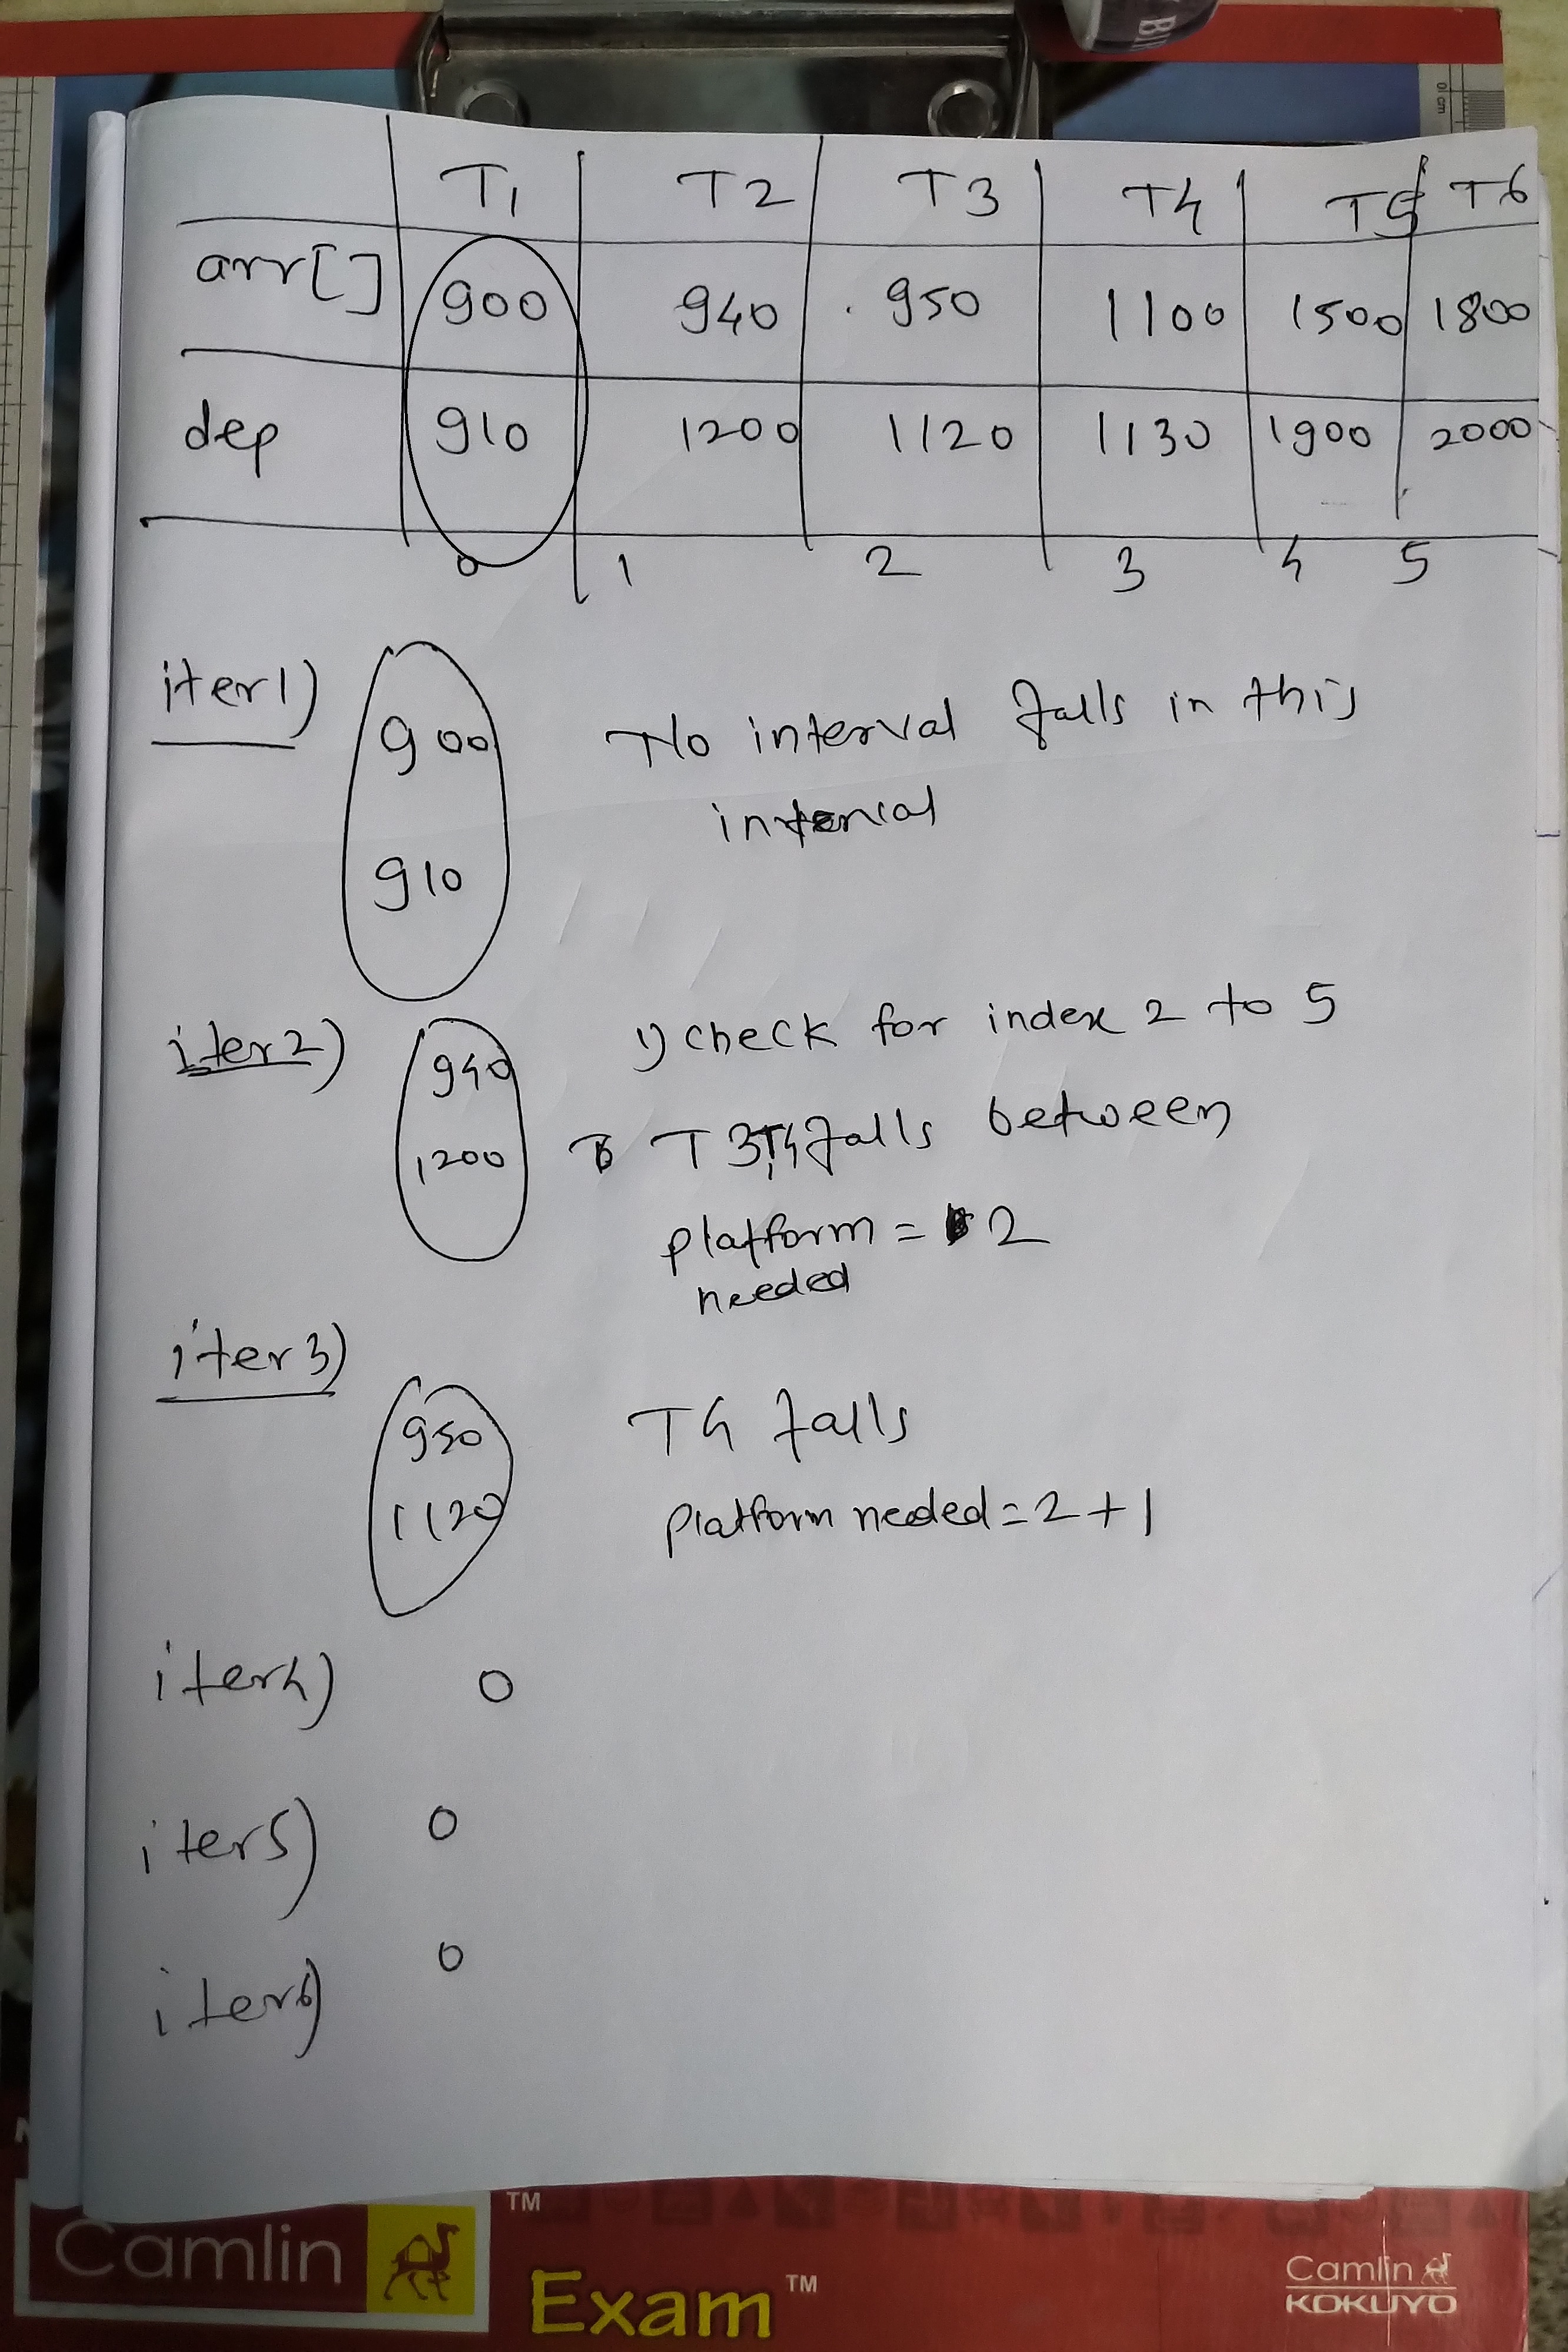 T1 T2 T3 T4 T5 T6
arr[] 900 940 950 1100 1500 1800
dep 910 1200 1120 1130 1900 2000
0 1 2 3 4 5
iter1) 900 No interval falls in this
interval
910
iter2) 940 1) check for index 2 to 5
1200 T3,T4 falls between
platform = 2
needed
iter3)
950 T4 falls
1120 platform needed = 2 + 1
iter4) 0
iter5) 0
iter6) 0
Camlin
TM
Exam TM
Camlin
KOKUYO